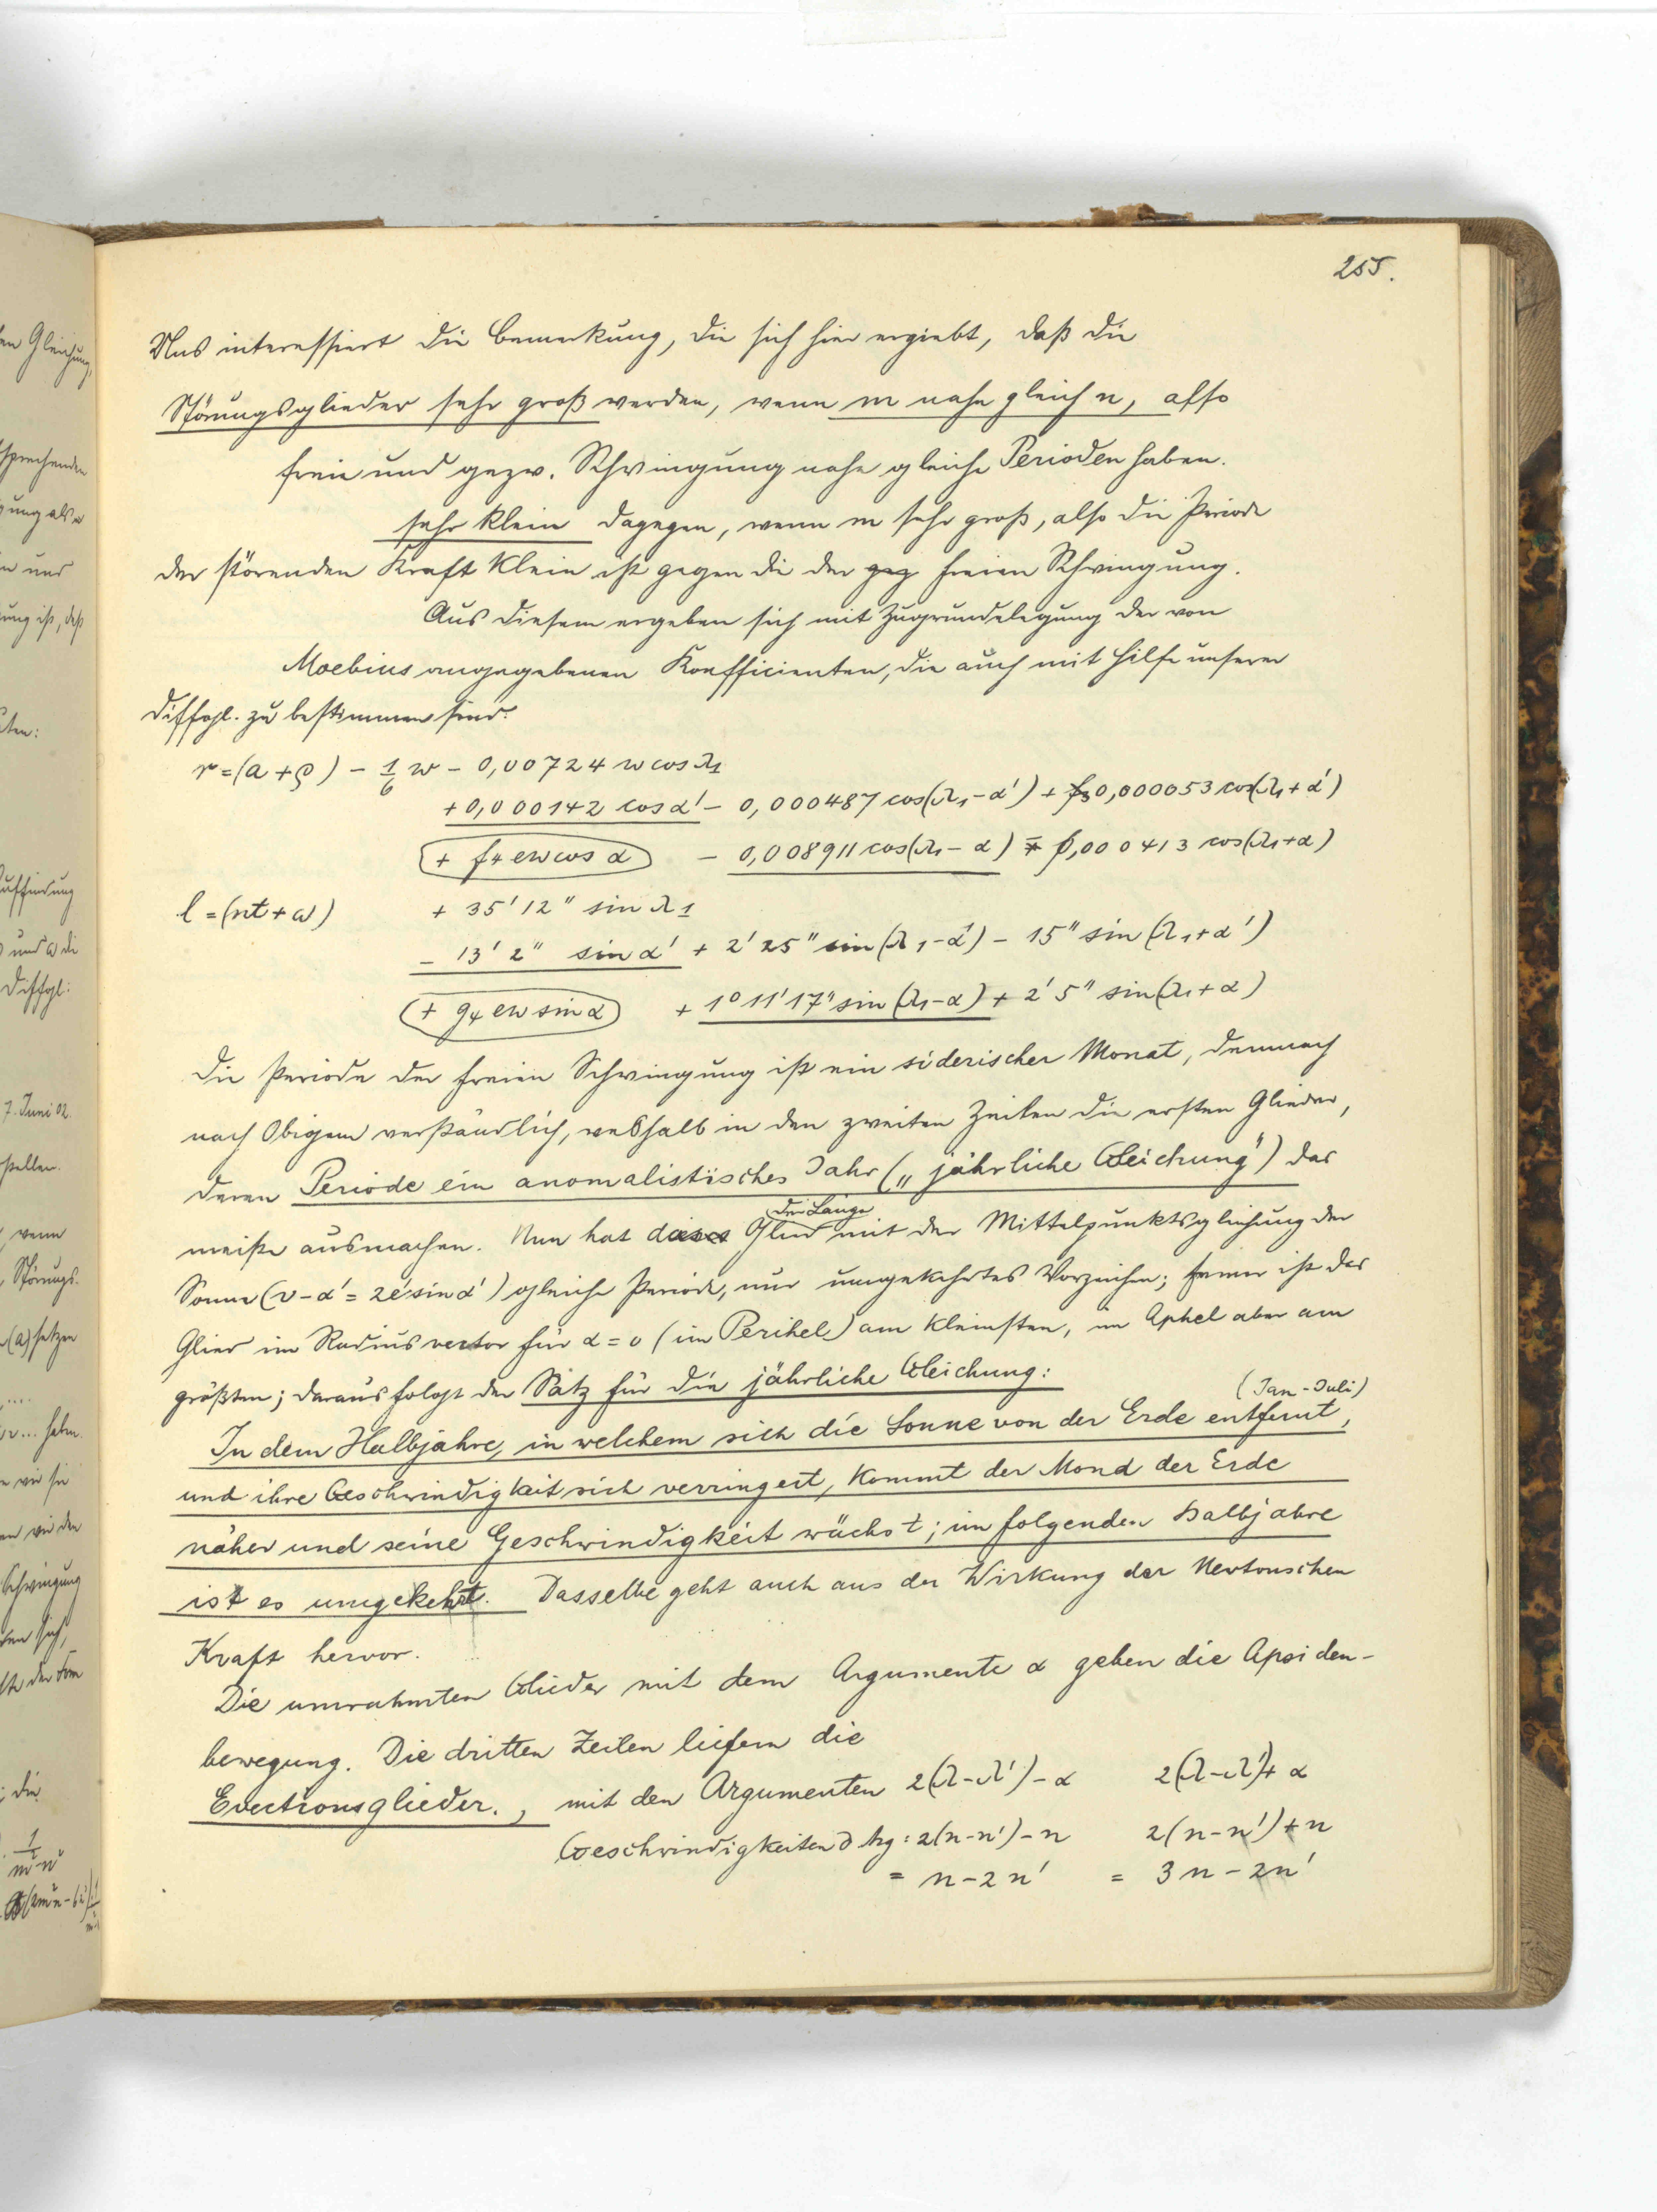 255.
Uns interessiert die Bemerkung, die sich hier ergiebt, daß die
Störungsglieder sehr groß werden, wenn m nahe gleich n, also
freie und gezw. Schwingung nahe gleiche Perioden haben.
sehr klein dagegen, wenn m sehr groß, also die Periode
der störenden Kraft klein ist gegen die der geg freien Schwingung.
Aus diesem ergeben sich mit Zugrundelegung der von
Moebius angegebenen Koefficienten, die auch mit Hilfe unserer
Diffgl. zu bestimmen sind:
r = (a + ρ) - 1/6 w - 0,00724 w cos λ1
+ 0,000142 cos α' - 0,000487 cos(λ1 - α') + f5 0,000053 cos(λ1 + α')
+ f4 ew cos α - 0,008911 cos(λ1 - α) ∓ 0,000413 cos(λ1 + α)
l = (nt + ω) + 35' 12" sin λ1
- 13' 2" sin α' + 2' 25" sin(λ1 - α') - 15" sin(λ1 + α')
+ g4 ew sin α + 1° 11' 17" sin(λ1 - α) + 2' 5" sin(λ1 + α)
Die Periode der freien Schwingung ist ein siderischer Monat, demnach
nach Obigem verständlich, weshalb in den zweiten Zeilen die ersten Glieder,
deren Periode ein anomalistisches Jahr („jährliche Gleichung") das
meiste ausmachen. Nun hat dieses Glied mit der Mittelpunktsgleichung der
der Länge
Sonne (v - α' = 2e' sin α') gleiche Periode, nur umgekehrtes Vorzeichen; ferner ist das
Glied im Radiusvector für α = 0 (im Perihel) am kleinsten, im Aphel aber am
größten; daraus folgt der Satz für die jährliche Gleichung:
(Jan - Juli)
In dem Halbjahre, in welchem sich die Sonne von der Erde entfernt,
und ihre Geschwindigkeit sich verringert, kommt der Mond der Erde
näher und seine Geschwindigkeit wächst; im folgenden Halbjahre
ist es umgekehrt. Dasselbe geht auch aus der Wirkung der Newtonschen
Kraft hervor.
Die umrahmten Glieder mit dem Argumente α geben die Apsiden-
bewegung. Die dritten Zeilen liefern die
Evectionsglieder., mit den Argumenten 2(λ - λ') - α 2(λ - λ') + α
Geschwindigkeiten d Arg: 2(n - n') - n 2(n - n') + n
= n - 2n' = 3n - 2n'